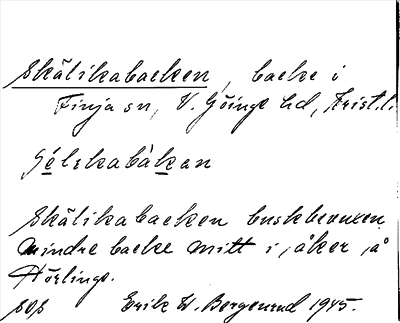 Skälikabacken, backe i
Finja sn, V. Göinge hd, Krist. l.
Skälikabacken buskbevuxen
mindre backe mitt i åker, å
Hörlinge.
Erik W. Bergenrud 1945.